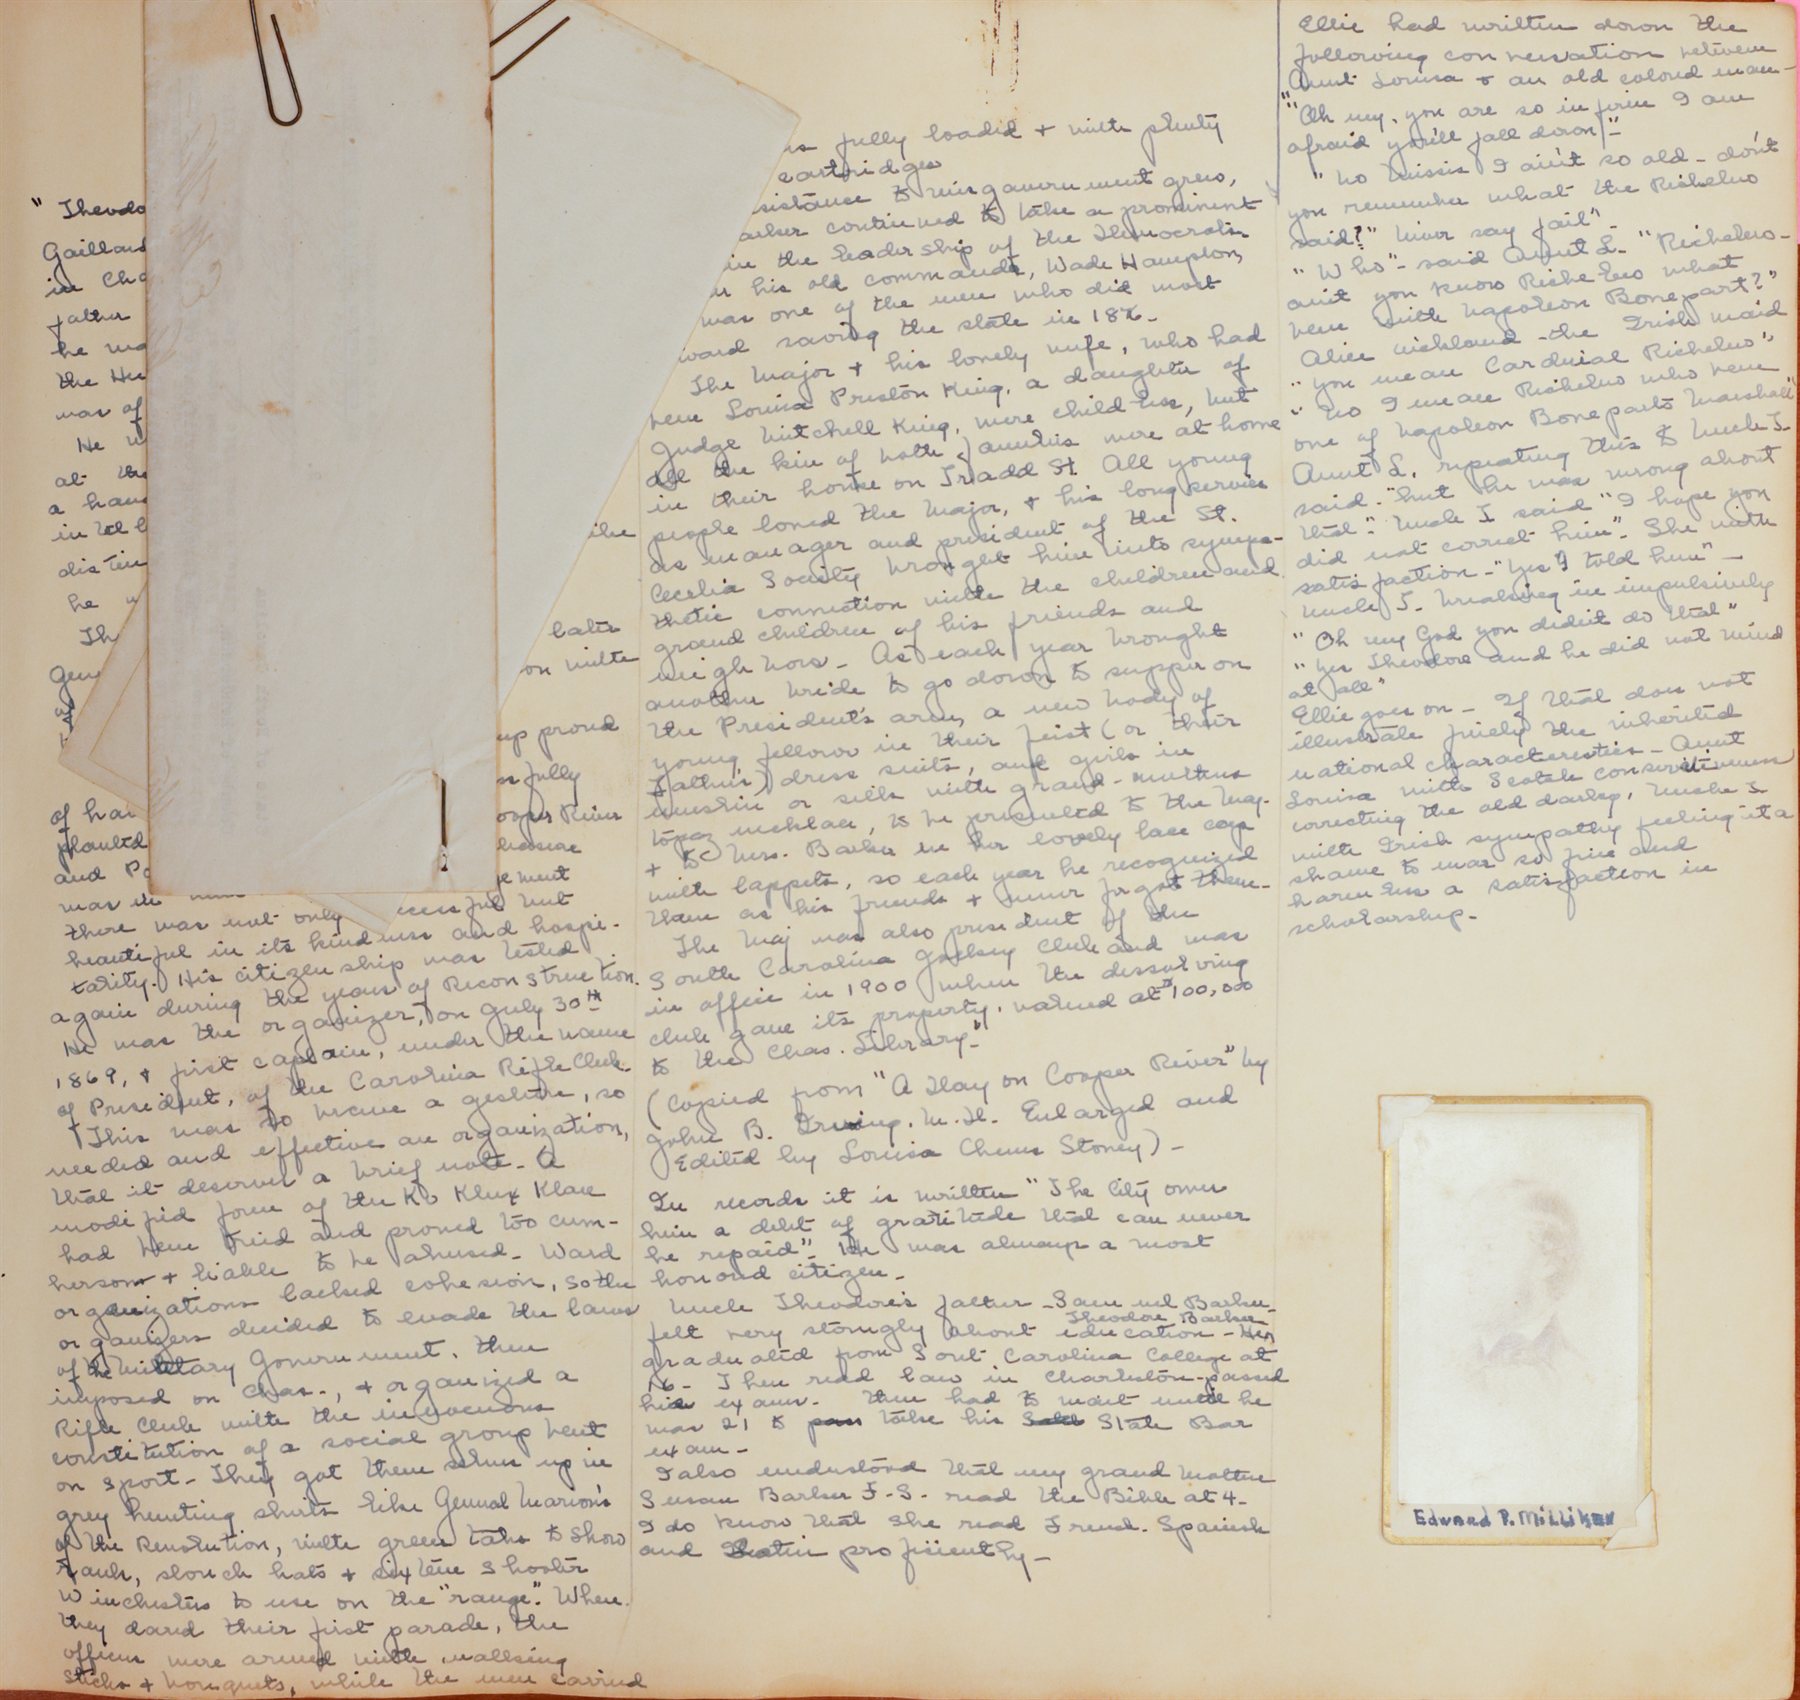 " Theodo
Gaillard
in Cha
father
he wa
the Hu
was of
He w
at the
a hand
in
distin
he w
Th
Gen
of har
planted
and Po
was in
there was not only cessful but
beautiful in its kindness and hospi-
tality. His citizenship was tested
again during the years of Reconstruction.
He was the organizer, on July 30th
1869, & first captain, under the name
of President, of the Carolina Rifle Club.
This was to become a gesture, so
needed and effective an organization,
that it deserves a brief note - A
modified form of the Ku Klux Klan
had been tried and proved too cum-
bersome & liable to be abused - Ward
organizations lacked cohesion, so the
organizers decided to evade the laws
of the Military Government, then
imposed on Chas., & organized a
Rifle Club with the innocuous
constitution of a social group bent
on sport - They got them selves up in
grey hunting shirts like General Marion's
of the Revolution, with green tabs to show
rank, slouch hats & sixteen shooter
Winchesters to use on the "range". When
they dared their first parade, the
officers were armed with walking
sticks & bouquets, while the men carried
later
on with
up proud
fully
ooper River
gement
ns fully loaded & with plenty
cartridges
sistance to misgovernment grew,
arker continued to take a prominent
in the leadership of the Democrats.
his old commander, Wade Hampton,
was one of the men who did most
ward saving the state in 1876 -
The Major & his lovely wife, who had
been Louisa Preston King, a daughter of
Judge Mitchell King, were childless, but
all the kin of both families were at home
in their house on Tradd St. All young
people loved the Major, & his long service
as manager and president of the St.
Cecelia Society brought him into sympa-
thetic connection with the children and
grand children of his friends and
neighbors - As each year brought
another bride to go down to supper on
the President's arm, a new body of
young fellows in their first (or their
Father's) dress suits, and girls in
muslin or silk with grand-mothers
topaz necklace, to be presented to the Maj.
& to Mrs. Barker in her lovely lace cap
with lappets, so each year he recognized
them as his friends & never forgot them -
The Maj was also president of the
South Carolina Jockey Club and was
in office in 1900 when the dissolving
club gave its property, valued at $100,000
to the Chas. Library -"
(Copied from "A Day on Cooper River" by
John B. Irving. M.D. Enlarged and
Edited by Louisa Cheves Stoney) -
In records it is written "The City owes
him a debt of gratitude that can never
be repaid" - He was always a most
honored citizen -
Uncle Theodore's father - Samuel Barker -
felt very strongly about education - Theodore Barker
graduated from South Carolina College at
16 - Then read law in Charleston - passed
his exams - then had to wait until he
was 21 to pass take his State Bar
exam -
I also understand that my grand mother
Susan Barker F.S. read the Bible at 4 -
I do know that she read French. Spanish
and Latin proficiently -
Ellie had written down the
following conversation between
Aunt Louisa & an old colored man -
"Ah my, you are so infirm I am
afraid you'll fall down" -
"No Missis I ain't so old - don't
you remember what the Richeleo
said?" Never say fail" -
"Who" - said Aunt L - "Richeleo -
ain't you know Richeleo what
been with Napoleon Bonepart?"
Alice Nickland - the Irish maid
"You mean Cardnial Richeleo"
"No I mean Richeleo who been
one of Napoleon Boneparts Marshall"
Aunt L. repeating this to Uncle T -
said - "but he was wrong about
that". Uncle T said "I hope you
did not correct him". She with
satisfaction - "Yes I told him" -
Uncle T - breaking in impulsively
"Oh my God you didn't do that"
"Yes Theodore and he did not mind
at all"
Ellie goes on - If that does not
illustrate finely the inherited
national characteristics - Aunt
Louisa with Scotch conservativeness
correcting the old darkey, Uncle T
with Irish sympathy feeling it a
shame to mar so fine and
harmless a satisfaction in
scholarship -
Edward P. Milliken